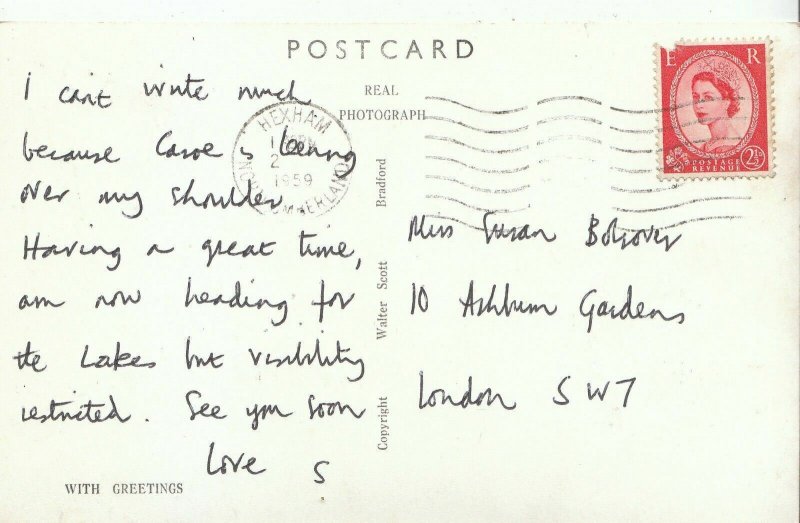 POSTCARD
REAL
PHOTOGRAPH
E R
2½
POSTAGE
REVENUE
HEXHAM
1959
NORTHUMBERLAND
I can't write much
because is leaning
over my shoulder.
Having a great time,
am now heading for
the Lakes but visibility
restricted. See you soon
Love S
Miss Susan Bolsover
10 Ashburn Gardens
London SW7
Copyright Walter Scott Bradford
WITH GREETINGS